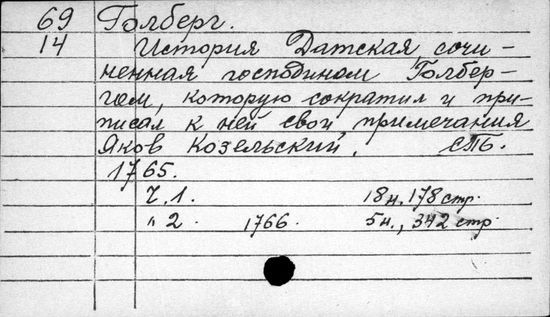 69 Голберг.
14 История Датская сочи-
ненная господином Голбер-
гом, которую сократил и при-
писал к ней свои примечания
Яков Козельский. СПб.
1765.
Ч. 1. 18н. 178 стр.
" 2. 1766. 5н., 342 стр.